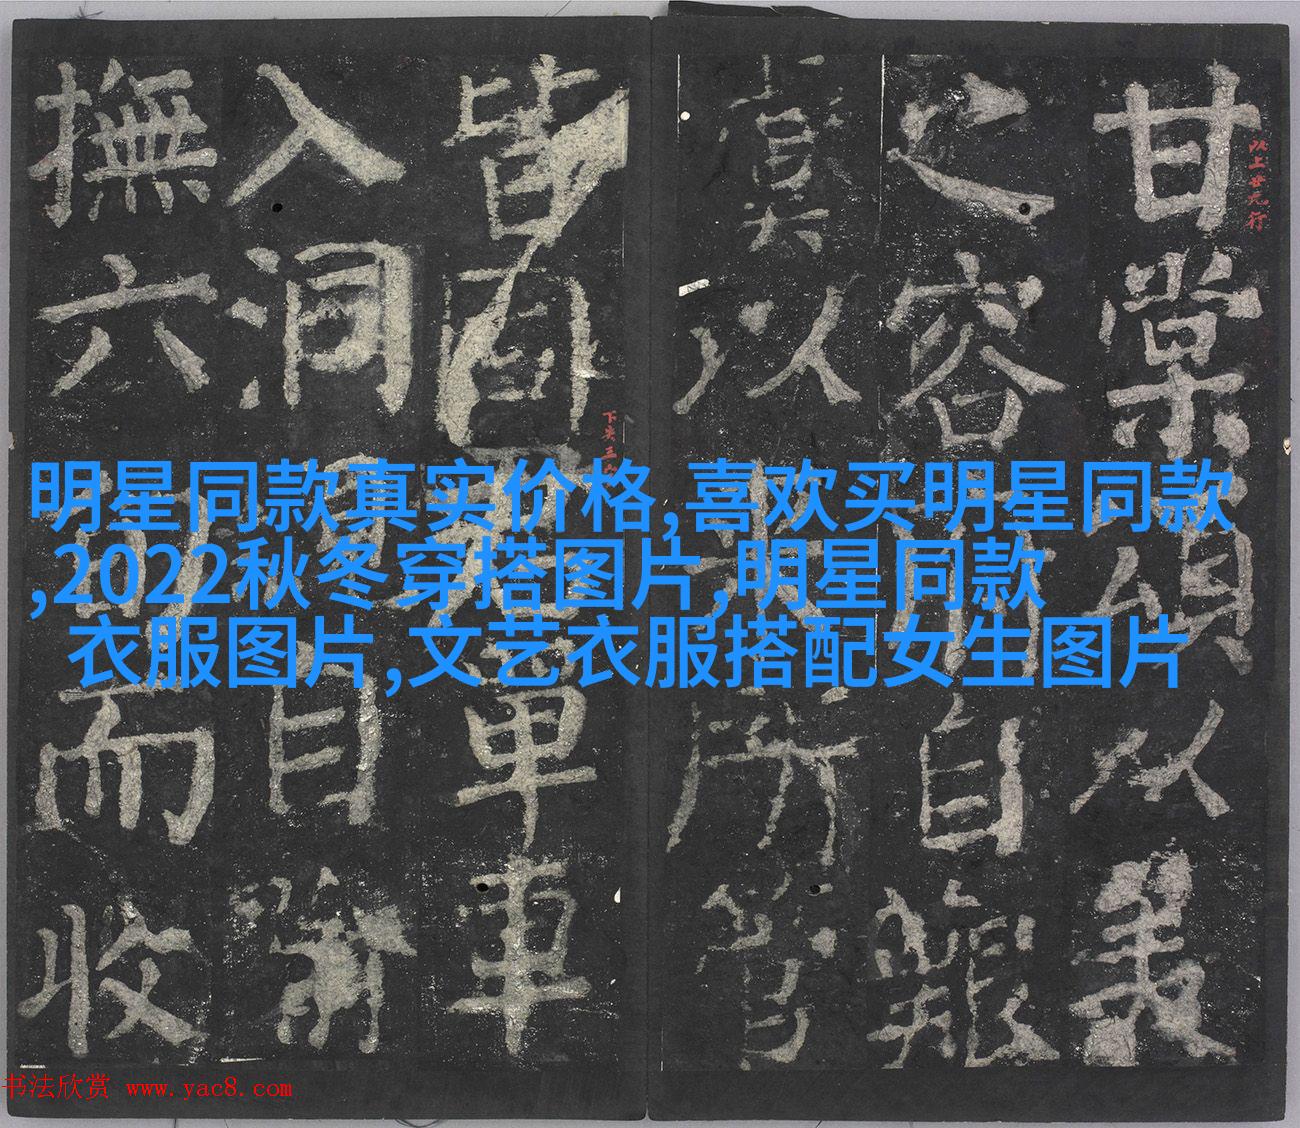 甘棠頌以裴
之容自艱
以所等
皆單車
入洞目前
撫六而收
以上廿九行
明星同款真实价格,喜欢买明星同款
,2022秋冬穿搭图片,明星同款
衣服图片,文艺衣服搭配女生图片
书法欣赏 www.yac8.com